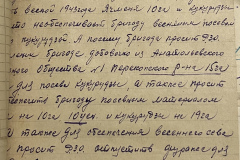 весной 1943 года Ячменя 10 га и кукурузы
что необеспечивает бригаду весенним посевом
и кукурузой А поэтому бригада просит РЗО.
бригаде добового из Анатольевского
ного Общества №1 Перекопского р-на 15 га
для посева кукурузы, а также просит
бригаду посевным материалом
на 10 га 10 цен. и кукурузы на 19 га
А также для обеспечения весеннего сева
просит РЗО, отпустить фуража для